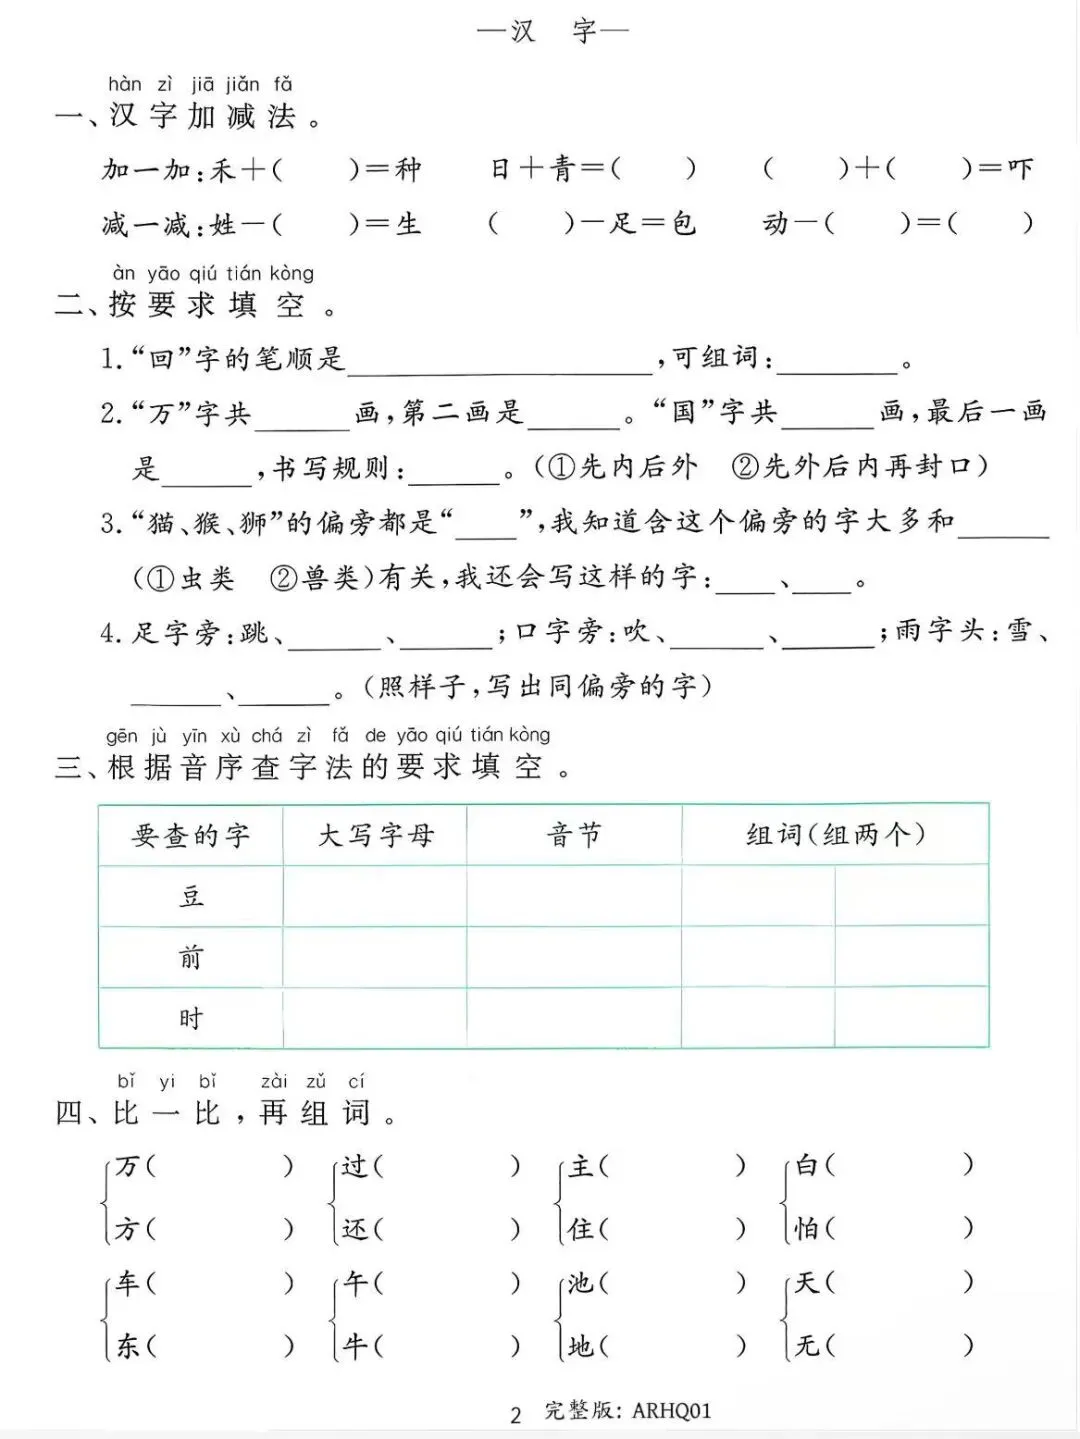 —汉 字—
hàn zì jiā jiǎn fǎ
一、汉字加减法。
加一加:禾＋( )＝种 日＋青＝( ) ( )＋( )＝吓
减一减:姓－( )＝生 ( )－足＝包 动－( )＝( )
àn yāo qiú tián kòng
二、按要求填空。
1.“回”字的笔顺是________,可组词:________。
2.“万”字共______画,第二画是______。“国”字共______画,最后一画
是______,书写规则:______。(①先内后外 ②先外后内再封口)
3.“猫、猴、狮”的偏旁都是“____”,我知道含这个偏旁的字大多和______
(①虫类 ②兽类)有关,我还会写这样的字:____、____。
4.足字旁:跳、______、______;口字旁:吹、______、______;雨字头:雪、
______、______。(照样子,写出同偏旁的字)
gēn jù yīn xù chá zì fǎ de yāo qiú tián kòng
三、根据音序查字法的要求填空。
要查的字 大写字母 音节 组词(组两个)
豆
前
时
bǐ yi bǐ zài zǔ cí
四、比一比,再组词。
万( ) 过( ) 主( ) 白( )
方( ) 还( ) 住( ) 怕( )
车( ) 午( ) 池( ) 天( )
东( ) 牛( ) 地( ) 无( )
2 完整版: ARHQ01